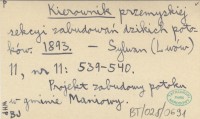 P
Kierownik przemyskiej
sekcyi zabudowań dzikich poto-
ków. 1893. – Sylwan (Lwów)
11, nr 11: 539-540.
Projekt zabudowy potoku
w gminie Maniowy.
BJ
BT/028/0691